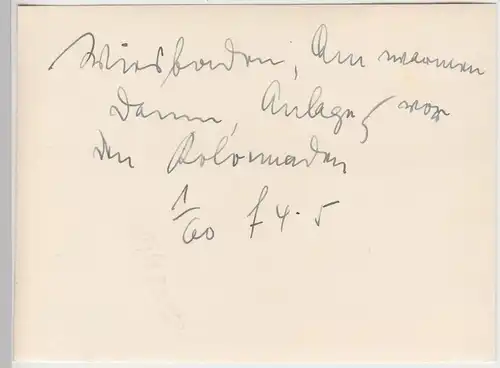 Wiesbaden, Am warmen
Damm, Anlage vor
den Kolonnaden
1/60 f 4.5